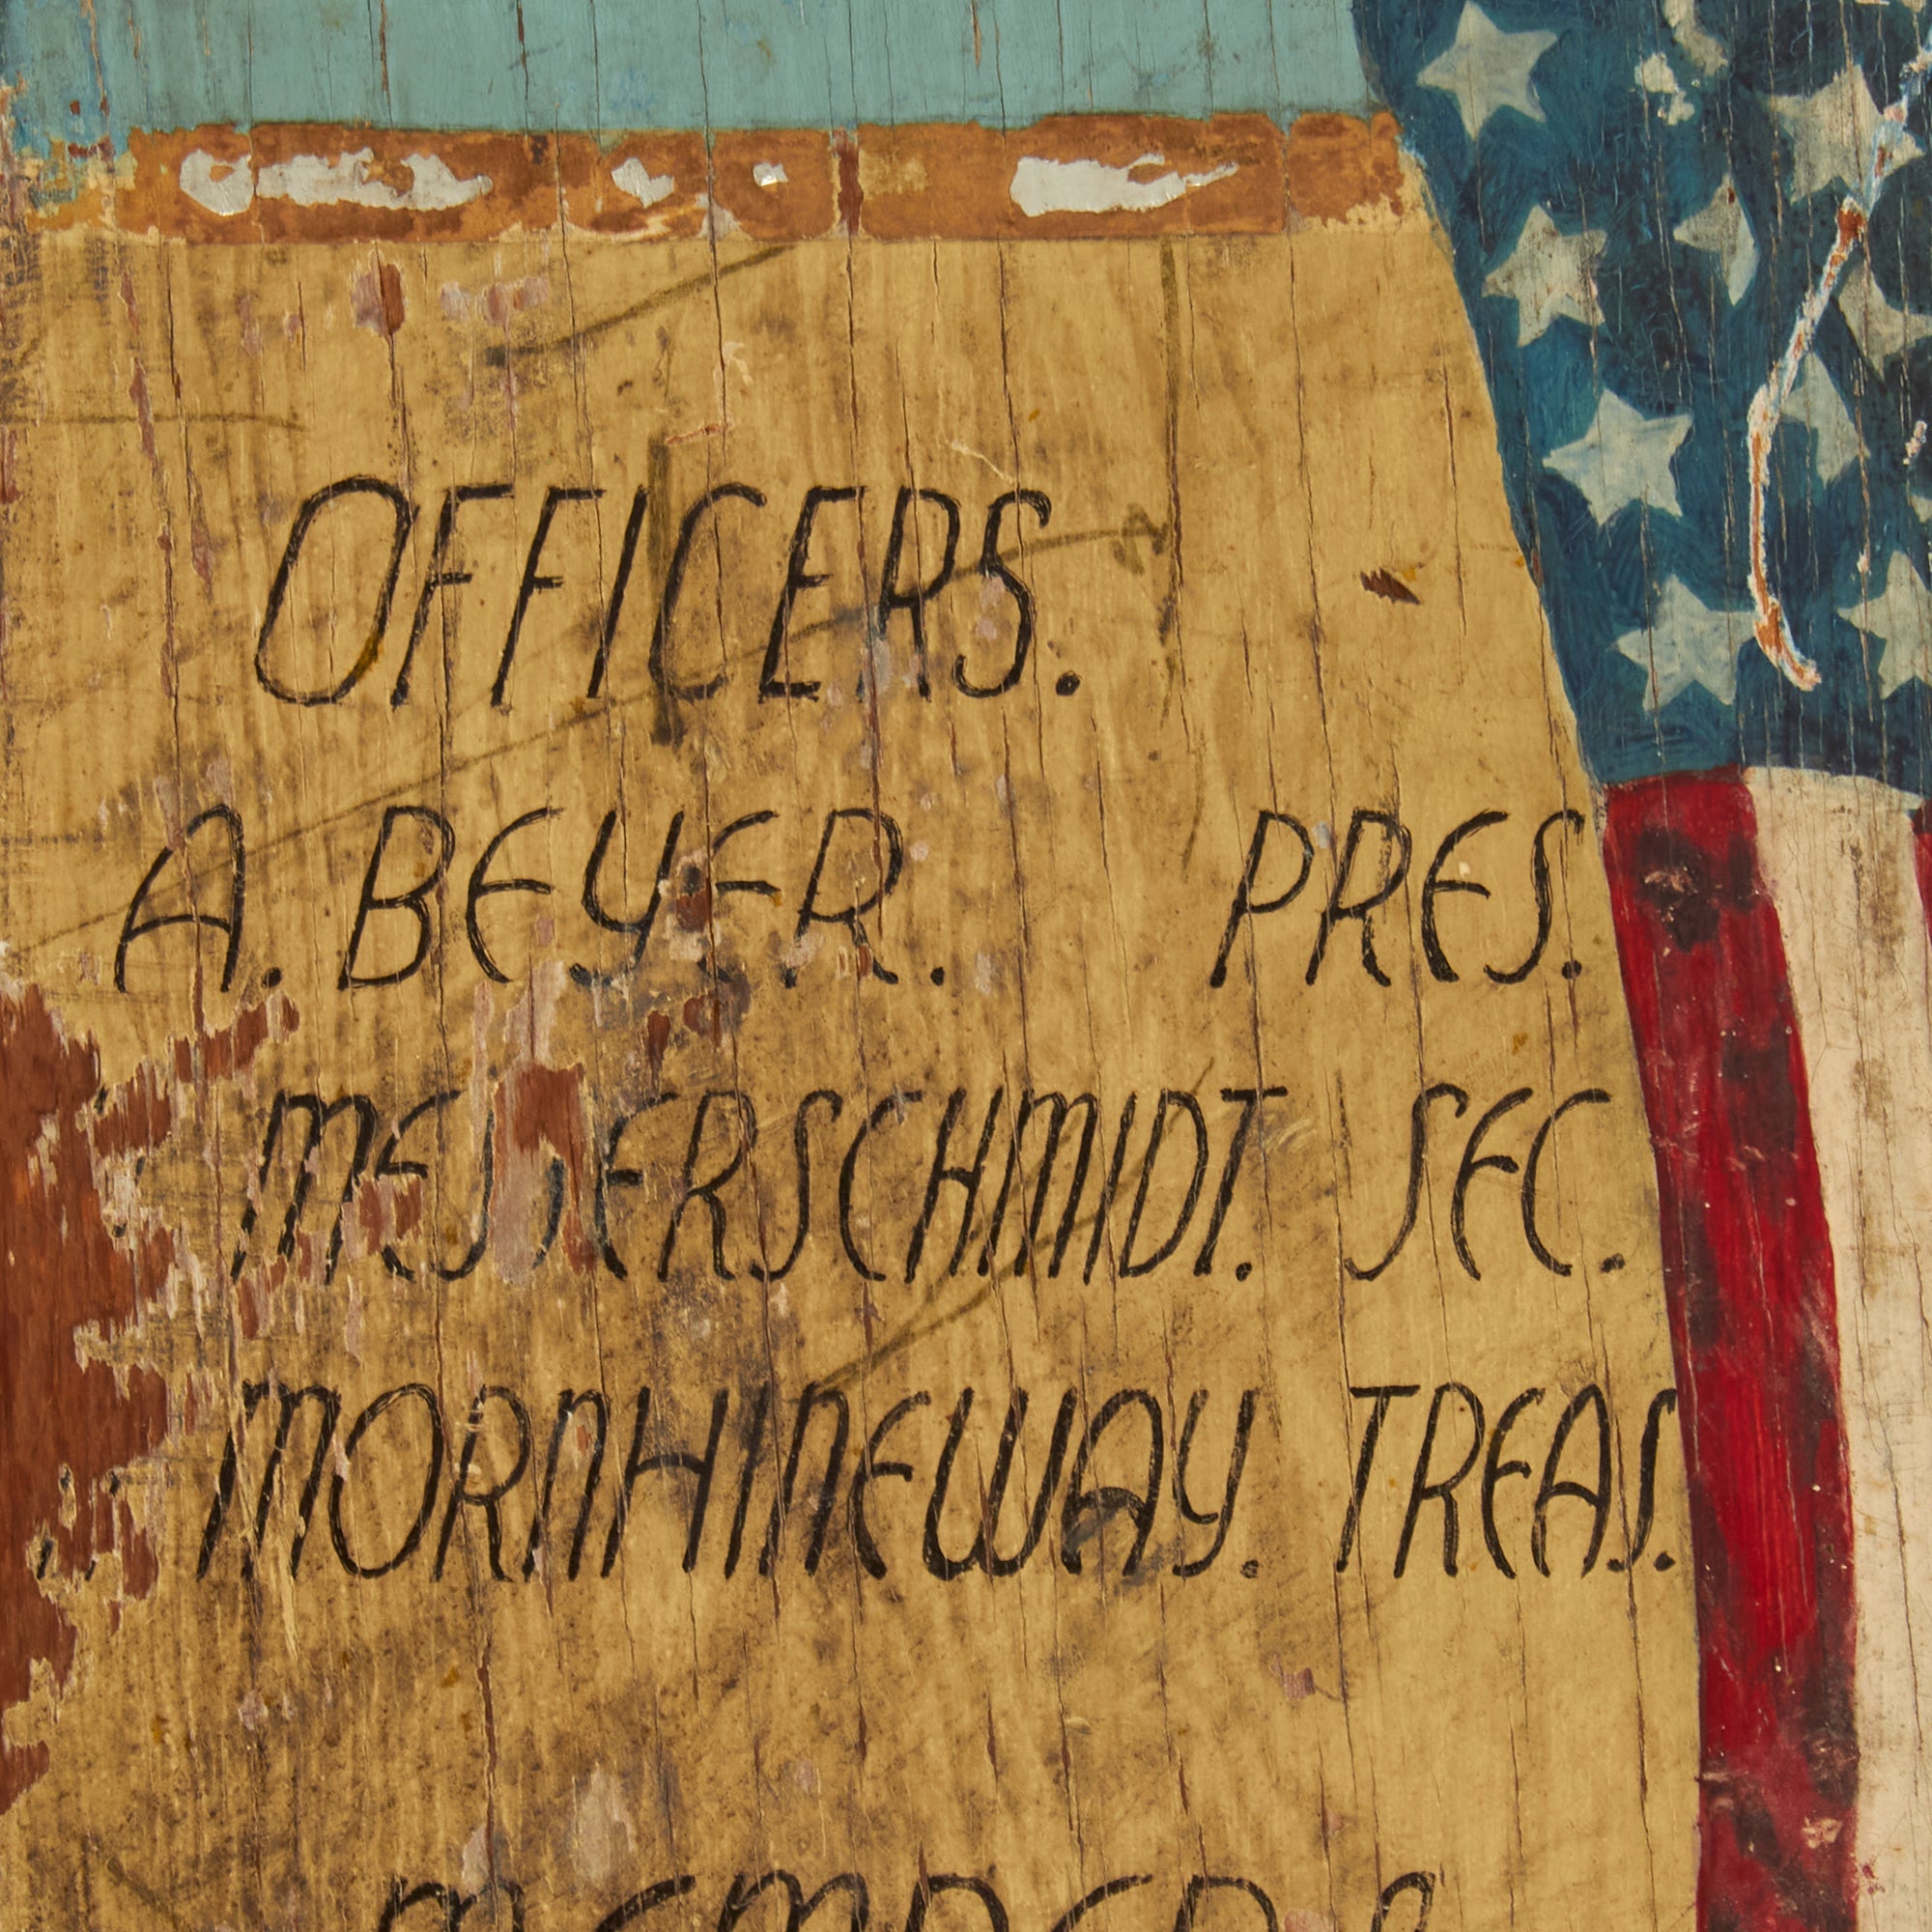 OFFICERS.
A. BEYER. PRES.
MESSERSCHMIDT. SEC.
MORNHINEWAY. TREAS.
MEMBERS